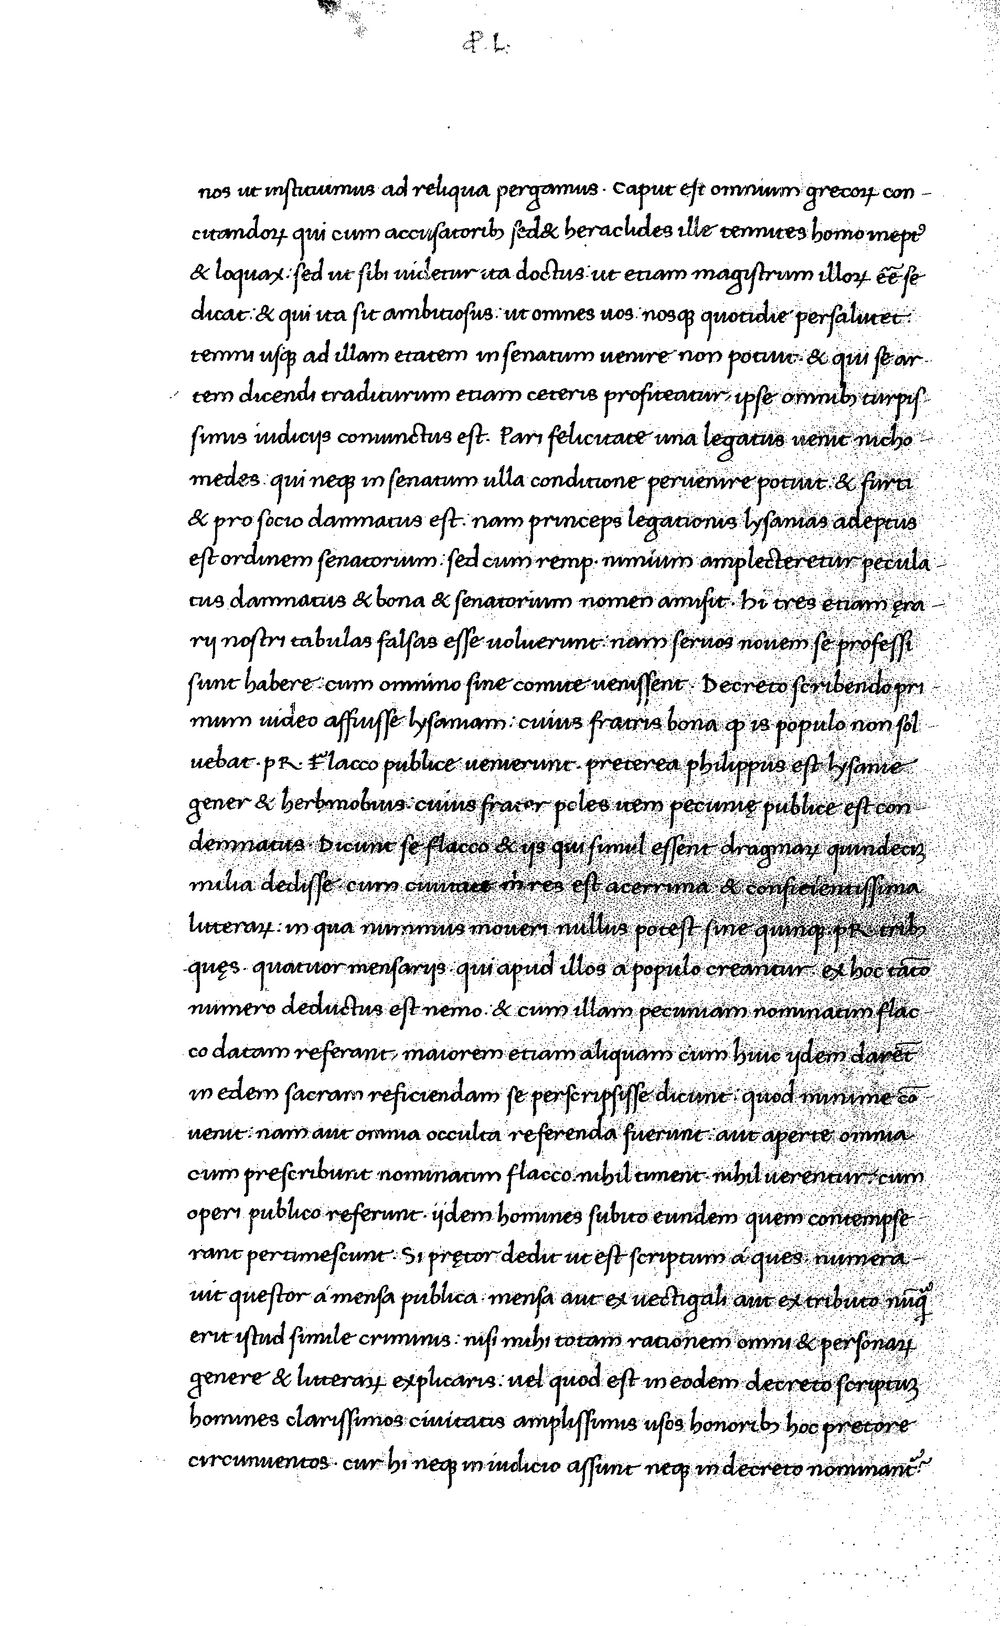 P. L.
nos ut instituimus ad reliqua pergamus. Caput est omnium grecoꝝ con-
citandoꝝ qui cum accusatorib; sed& heraclides ille temnites homo inept᾽
& loquax: sed ut sibi uidetur ita doctus: ut etiam magistrum illoꝝ eē̄ se
dicat: & qui ita sit ambitiosus: ut omnes uos nosqꝫ quotidie persalutet:
temni usqꝫ ad illam etatem in senatum uenire non potuit: & qui se ar-
tem dicendi traditurum etiam ceteris profiteatur, ipse omnib; turpis-
simis iudicijs coniunctus est. Pari felicitate una legatus uenit nicho-
medes. qui neqꝫ in senatum ulla conditione peruenire potuit: & furti
& pro socio damnatus est. nam princeps legationis lysanias adeptus
est ordinem senatorium: sed cum remp. nimium amplecteretur pecula-
tus damnatus & bona & senatorium nomen amisit. hi tres etiam ęra-
rij nostri tabulas falsas esse uoluerunt: nam seruos nouem se professi
sunt habere: cum omnino sine comite uenissent. Decreto scribendo pri-
mum uideo affuisse lysaniam: cuius fratris bona ꝙ is populo non sol-
uebat. pR. Flacco publice uenierunt. preterea philippus est lysanie
gener & herbmobius: cuius frater poles item pecunię publice est con-
demnatus. Dicunt se flacco & ijs qui simul essent dragmaꝝ quindeciꝫ
milia dedisse: cum ciuitate m̄ res est acerrima & conficientissima
litteraꝝ: in qua nummus moueri nullus potest sine quinqꝫ pR. trib;
quęs. quatuor mensarijs. qui apud illos a populo creantur. ex hoc tāto
numero deductus est nemo. & cum illam pecuniam nominatim flac-
co datam referant, maiorem etiam aliquam cum huic ijdem darēt
in edem sacram reficiendam se perscripsisse dicunt: quod minime cō-
uenit: nam aut omnia occulta referenda fuerunt: aut aperte omnia
cum prescribunt nominatim flacco. nihil timent. nihil uerentur: cum
operi publico referunt. ijdem homines subito eundem quem contempse-
rant pertimescunt. Si prętor dedit ut est scriptum a ques. numera-
uit questor a mensa publica. mensa aut ex uectigali aut ex tributo nūqᷓ
erit istud simile criminis: nisi mihi totam rationem omni & personaꝝ
genere & litteraꝝ explicaris: uel quod est in eodem decreto scriptuꝫ
homines clarissimos ciuitatis amplissimis usos honorib; hoc pretore
circunuentos. cur hi neqꝫ in iudicio assunt neqꝫ in decreto nominant᷑?